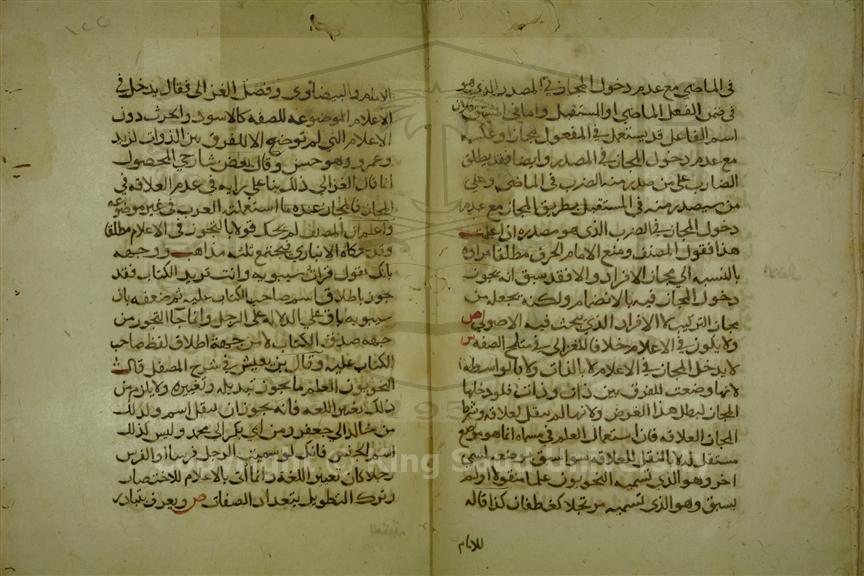 في الماضي مع عدم دخول المجاز في المصدر الذي هو
في ضمن الفعل الماضي او المستقبل واما في المشتق فلان
اسم الفاعل قد يستعمل في المفعول مجازا وعكسه
مع عدم دخول المجاز في المصدر وايضا فقد يطلق
الضارب على من صدر منه الضرب في الماضي وعلى
من سيصدر منه في المستقبل بطريق المجاز مع عدم
دخول المجاز في الضرب الذي هو مصدره اذا علمت
هذا فقول المصنف ومنع الامام الحرف مطلقا مراده
بالنسبه الى مجاز الافراد والا فقد سبق انه يجوز
دخول المجاز فيه بالانضمام ولكنه يجعله من
مجاز التركيب لا الافراد الذي يبحث فيه الاصولي ص
ولا يكون في الاعلام خلافا للغزالي في متلمح الصفه ش
لا يدخل المجاز في الاعلام لا بالذات ولا بالواسطه
لانها وضعت للفرق بين ذات وذات فلو دخلها
المجاز لبطل هذا الغرض ولانها لم تنقل لعلاقه وشرط
المجاز العلاقه فان استعمال العلم في مسماه انما هو بوضع
مستقل له لا النقل للعلاقه سوا سبق وضعه لشي
اخر وهو الذي تسميه النحويون علما منقولا او لم
يسبق وهو الذي تسميه مرتجلا كغطفان كذا قاله
للامام
الامام والبيضاوي وفصل الغزالي فقال يدخل في
الاعلام الموضوعه للصفه كالاسود والحرث دون
الاعلام التي لم توضع الا للفرق بين الذوات كزيد
وعمرو وهو حسن وقال بعض شارحي المحصول
انما قال الغزالي ذلك بنا على رايه في عدم العلاقه في
المجاز فالمجاز عنده ما استعملته العرب في غير موضوعه
واعلم ان المصنف لم يحك قولا بالتجوز في الاعلام مطلقا
وقد حكاه الانباري فتجتمع ثلثه مذاهب ووجهه
بانك تقول قرات سيبويه وانت تريد الكتاب فقد
جوز باطلاق اسم صاحب الكتاب عليه ثم ضعفه بان
سيبويه باق على الدلاله على الرجل وانما جا التجوز من
جهة حذف الكتاب لا من جهة اطلاق لفظ صاحب
الكتاب عليه وقال بن يعيش في شرح المفصل قال
النحويون العلم ما يجوز تبديله وتغييره ولا يلزم من
ذلك تغيير اللغه فانه يجوز ان ينقل اسم ولدك
من خالد الى جعفر ومن ابي بكر الى محمد وليس كذلك
اسم الجنس فانك لو سميت الرجل فرسا والفرس
رجلا كان تغيير اللغة وانما اتى بالاعلام للاختصار
وترك التطويل بتعداد الصفات ص ويعرف بتبادر